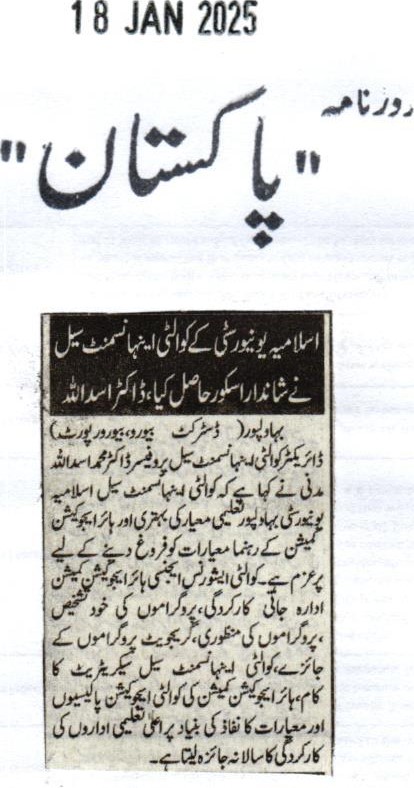 18 JAN 2025
روزنامہ
"پاکستان"
اسلامیہ یونیورسٹی کے کوالٹی اینہانسمنٹ سیل
نے شاندار اسکور حاصل کیا، ڈاکٹر اسد اللہ
بہاولپور( ڈسٹرکٹ بیورو، بیورورپورٹ)
ڈائریکٹر کوالٹی اینہانسمنٹ سیل پروفیسر ڈاکٹر محمد اسد اللہ
مدنی نے کہا ہے کہ کوالٹی اینہانسمنٹ سیل اسلامیہ
یونیورسٹی بہاولپور تعلیمی معیار کی بہتری اور ہائر ایجوکیشن
کمیشن کے رہنما معیارات کو فروغ دینے کے لیے
پرعزم ہے۔ کوالٹی ایشورنس ایجنسی ہائر ایجوکیشن کمیشن
ادارہ جاتی کارکردگی، پروگراموں کی خود تشخیص
،پروگراموں کی منظوری، گریجویٹ پروگراموں کے
جائزے، کوالٹی اینہانسمنٹ سیل سیکریٹریٹ کا
کام، ہائر ایجوکیشن کمیشن کی کوالٹی ایجوکیشن پالیسیوں
اور معیارات کا نفاذ کی بنیاد پر اعلیٰ تعلیمی اداروں کی
کارکردگی کا سالانہ جائزہ لیتا ہے۔